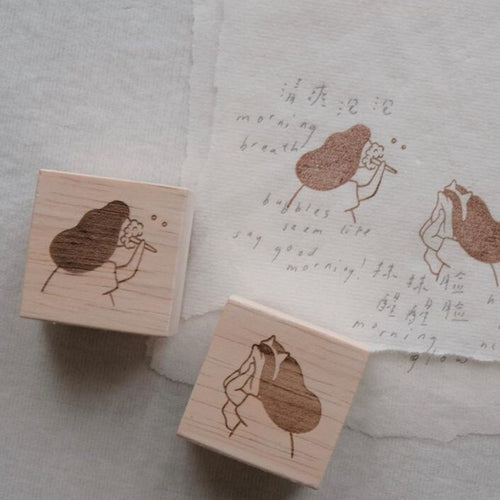 清爽泡泡
morning
breath
bubbles
seem like
say good
morning!
抹抹臉
醒醒臉
morning
glow